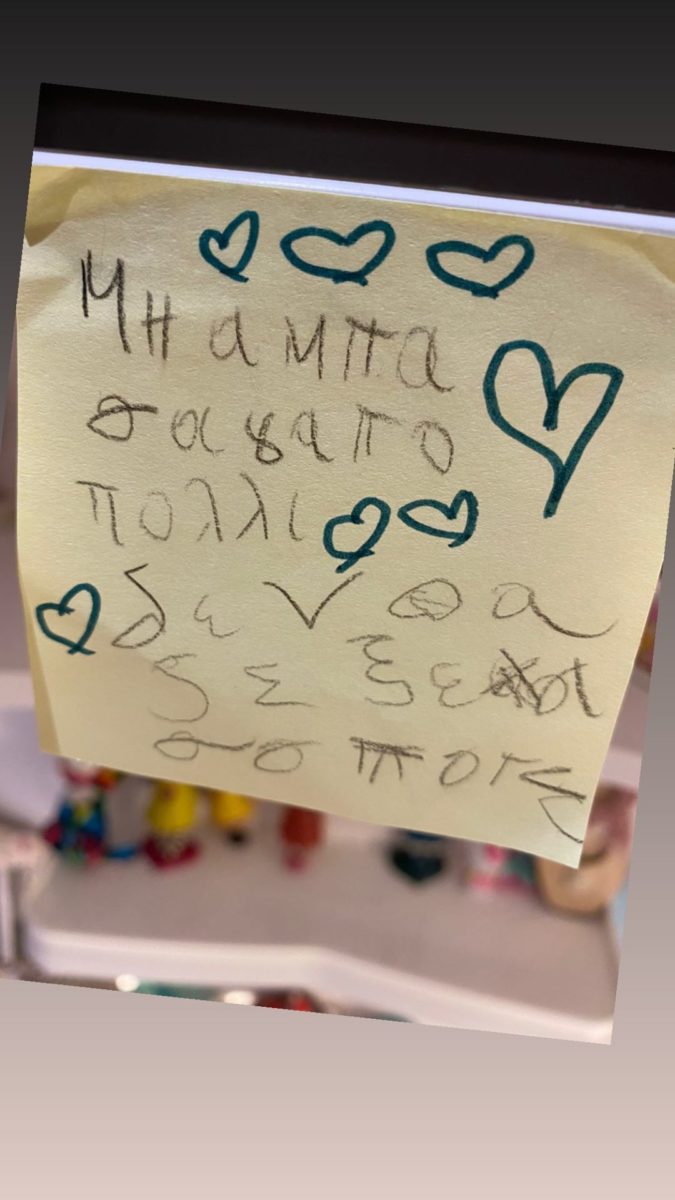 Μπαμπα
σαγαπο
πολλι
δεν θα
σε ξεχα
σο ποτε